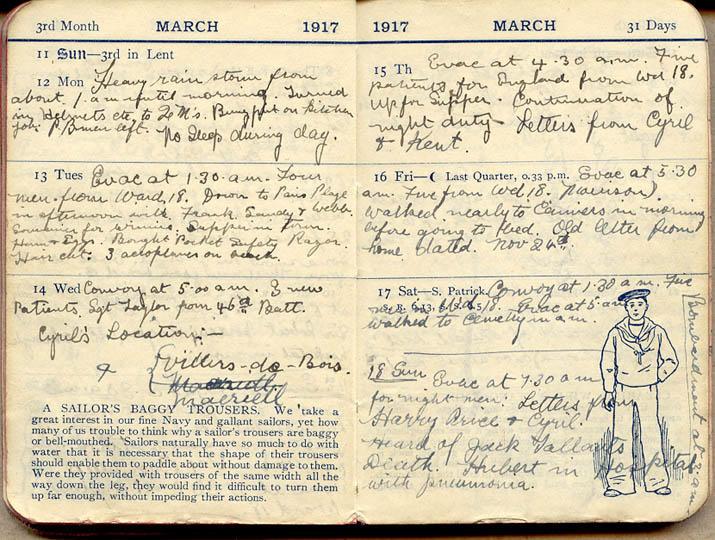 3rd Month MARCH 1917
11 Sun—3rd in Lent
12 Mon Heavy rain storm from
about 1. a.m until morning. Turned
my Helmets etc. to Q M's. Bung put on Kitchen
job. left. No Sleep during day.
13 Tues Evac at 1.30 a.m. Four
men from Ward 18. Down to Paris Plage
in afternoon with Frank, Sandy & Webb.
Souvenir for Winnie. Supper in town.
Ham & Eggs. Bought Pocket Safety Razor.
Hair cut. 3 aeroplanes on beach.
14 Wed Convoy at 5.00 a.m. 3 new
Patients. Sgt Taylor from 46th Batt.
Cyril's Location:—
& Villers-do-Bois.
A SAILOR'S BAGGY TROUSERS. We take a
great interest in our fine Navy and gallant sailors, yet how
many of us trouble to think why a sailor's trousers are baggy
or bell-mouthed. Sailors naturally have so much to do with
water that it is necessary that the shape of their trousers
should enable them to paddle about without damage to them.
Were they provided with trousers of the same width all the
way down the leg, they would find it difficult to turn them
up far enough, without impeding their actions.
1917 MARCH 31 Days
15 Th Evac at 4.30 a.m. Five
patients for England from Wd 18.
Up for Supper. Continuation of
night duty. Letters from Cyril
& Kent.
16 Fri—( Last Quarter, 0.33 p.m. Evac at 5.30
am. Five from Wd 18. Morrison).
Walked nearly to Camiers in morning
before going to bed. Old letter from
home dated. Nov 24th.
17 Sat—S. Patrick. Convoy at 1.30 a.m. Five
Wd 18. Evac at 5 am
Walked to Cemetery in a.m.
18 Sun Evac at 7.30 a.m
for night men. Letters from
Harry Price & Cyril.
Heard of Jack Vallants
Death. Hubert in Hospital
with pneumonia.
Bombardment at 2 a.m.